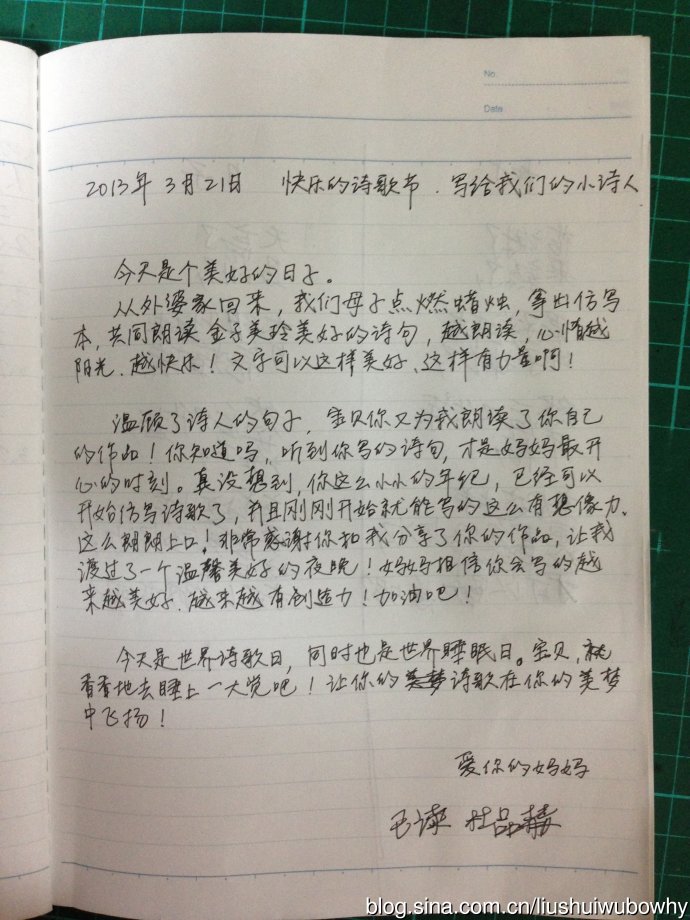 No.
Date
2013年3月21日 快乐的诗歌节.写给我们的小诗人
今天是个美好的日子。
从外婆家回来,我们母子点燃蜡烛,拿出仿写
本,共同朗读金子美玲美好的诗句,越朗读,心情越
阳光、越快乐!文字可以这样美好、这样有力量啊!
温顾了诗人的句子,宝贝你又为我朗读了你自己
的作品!你知道吗,听到你写的诗句,才是妈妈最开
心的时刻。真没想到,你这么小小的年纪,已经可以
开始仿写诗歌了,并且刚刚开始就能写的这么有想像力、
这么朗朗上口!非常感谢你和我分享了你的作品,让我
渡过了一个温馨美好的夜晚!妈妈相信你会写的越
来越美好、越来越有创造力!加油吧!
今天是世界诗歌日,同时也是世界睡眠日。宝贝,就
香香地去睡上一大觉吧!让你的诗歌在你的美梦
中飞扬!
爱你的妈妈
已读 杜品
blog.sina.com.cn/liushuiwubowhy